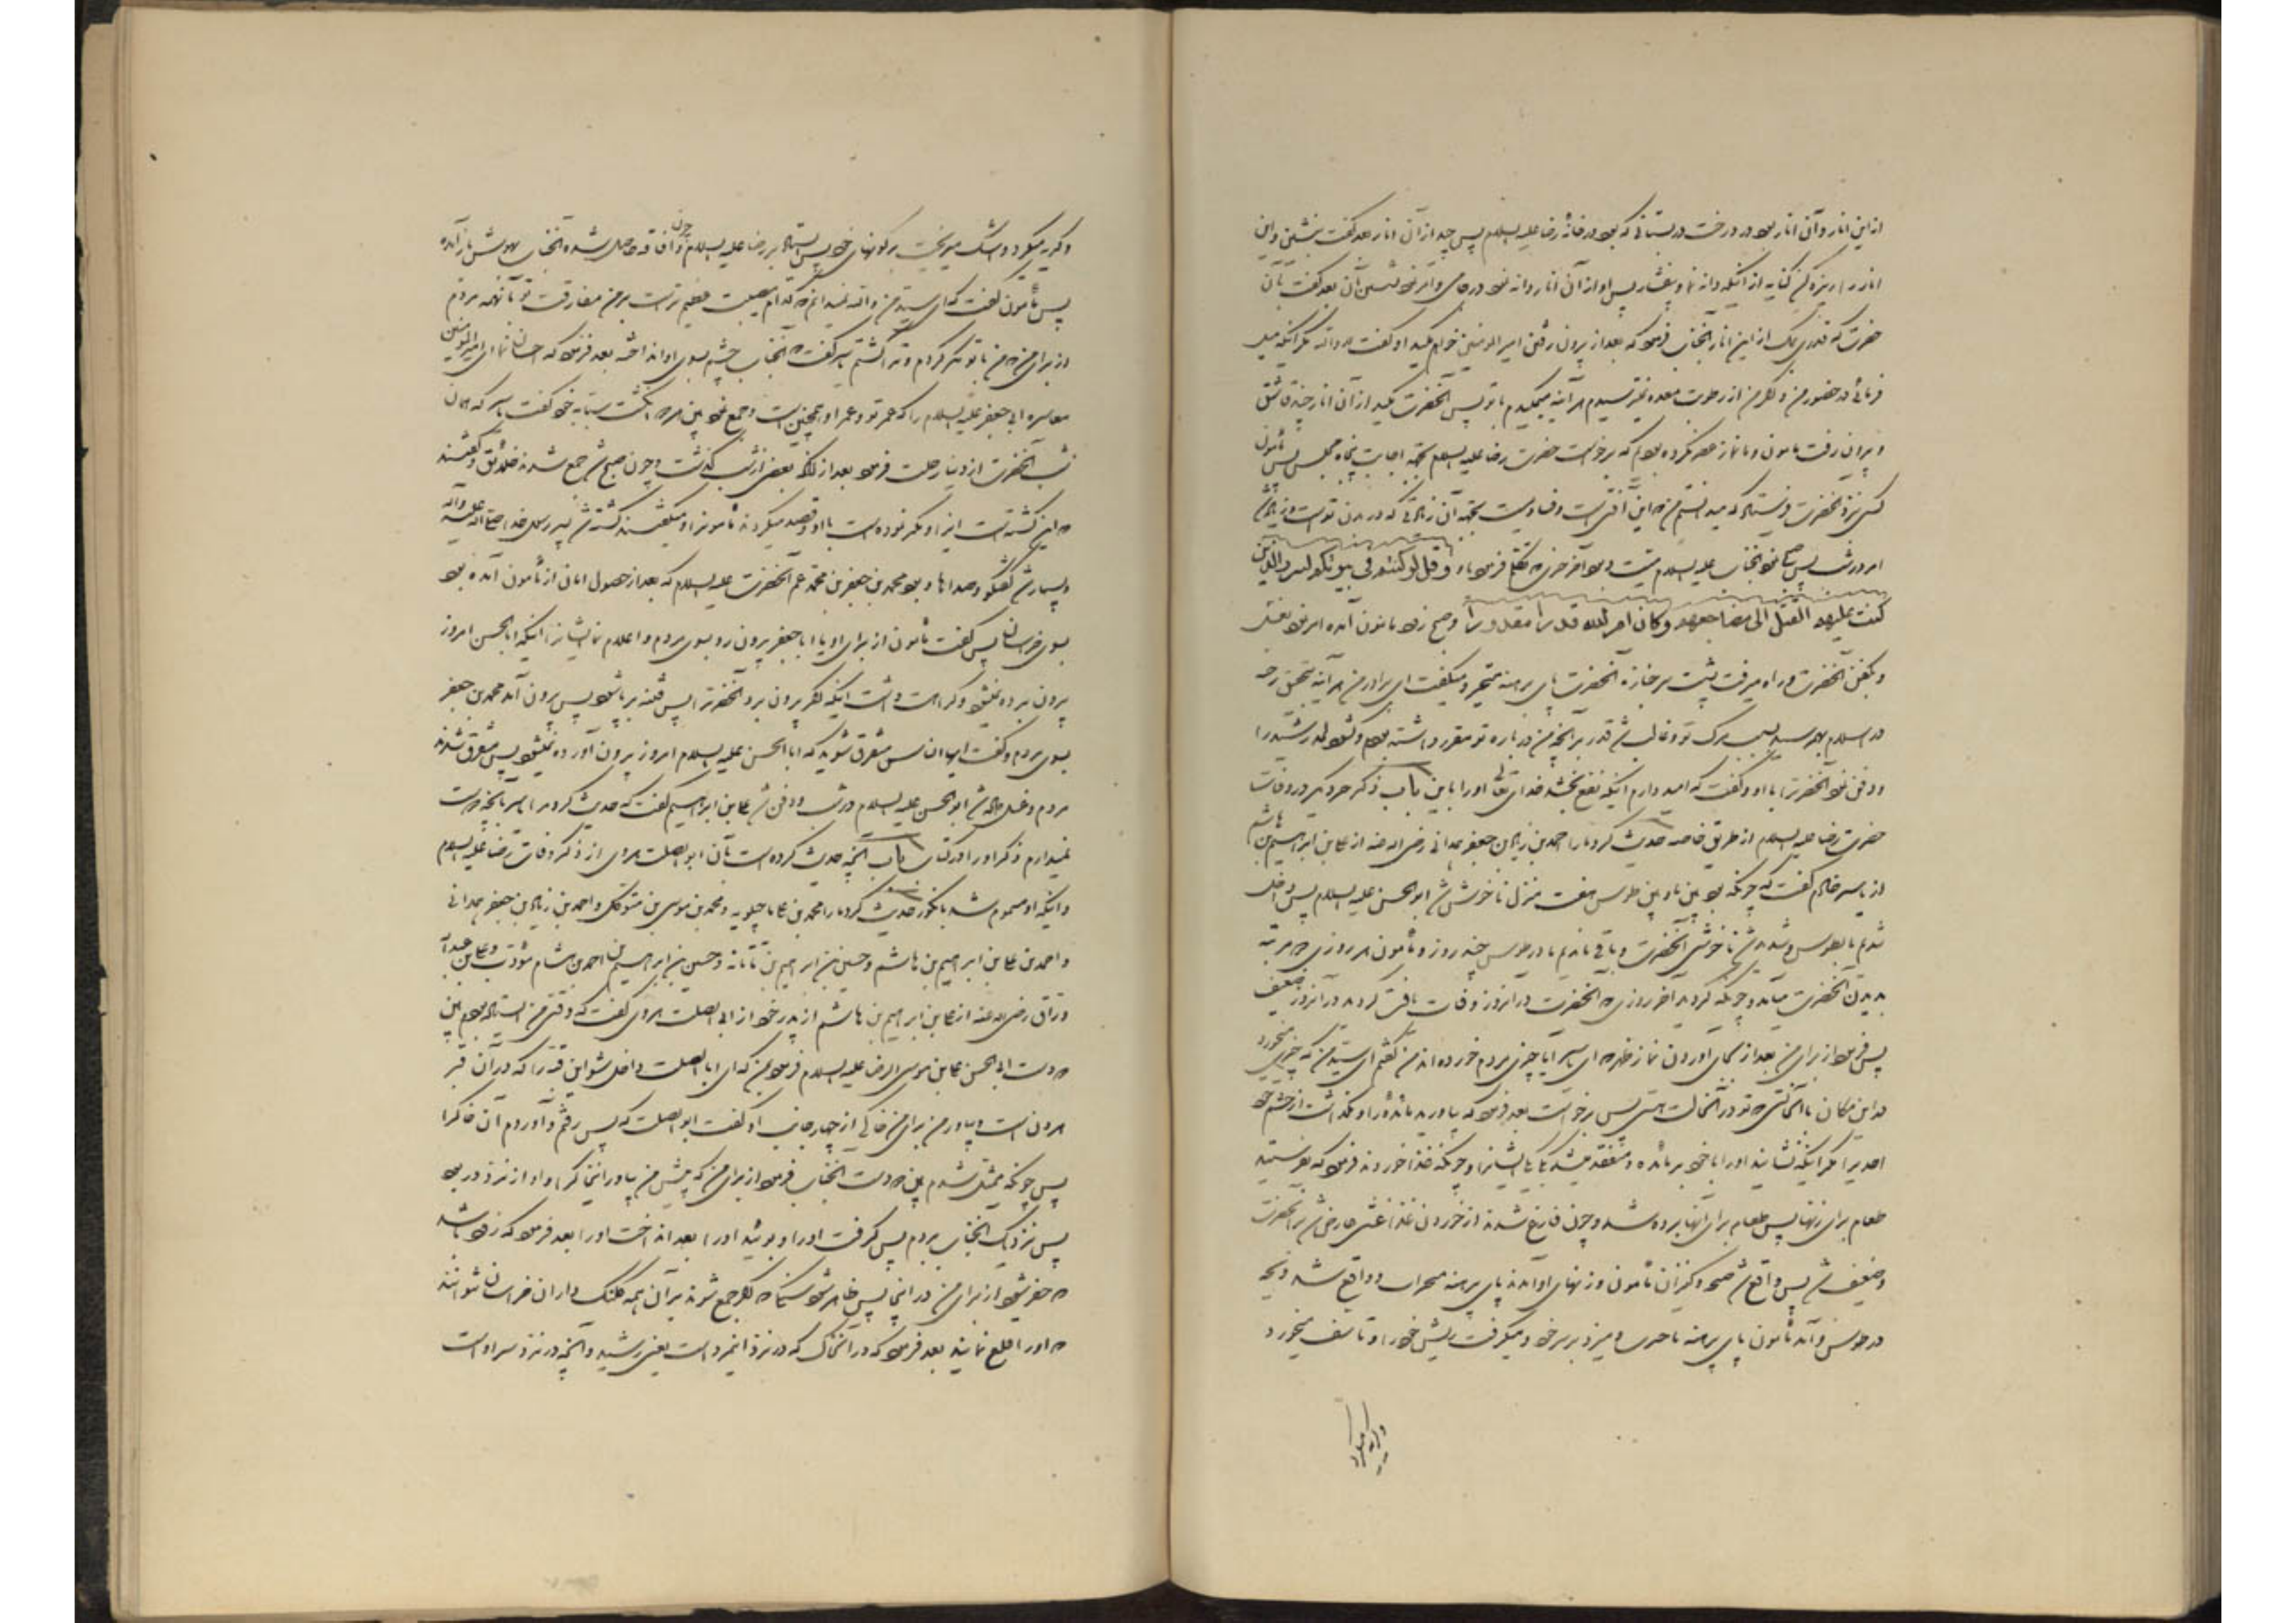 از این انار و آن انار بود در درخت در بستانی که بود در خانه رضا علیه السلام پس چید از آن انار بعد گفت بنشین و این
انار را ریزه کن کنایه از آنکه دانه نما و بفشار پس او از آن انار دانه نمود در جامی و امر نمود بشستن آن بعد گفت بآن
حضرت که قدری بمک از این انار آنجناب فرمود که بعد از بیرون رفتن امیر المومنین خواهم مکید او گفت نه والله مگر آنکه میل
فرمائی در حضور من و اگر من از رطوبت معده نمیترسیدم هر آینه میمکیدم با تو پس آنحضرت مکید از آن انار چند قاشق
و بیرون رفت مامون و ما نماز عصر نکرده بودیم که برخواست حضرت رضا علیه السلام بجهة اجابت پنجاه مجلس پس مأمون
کسی نزد آنحضرت فرستاد که میدانستم من که این آفتی است و فسادیست بجهة آن زیادتی که در بدن تو است و زیاد شد
امر در شب پس صبح نمود آنجناب علیه السلام میت و بود آخر حرفی که تکلم فرمود بآن وقل لو کنتم فی بیوتکم لبرز الذین
کتب علیهم القتل الی مضاجعهم وکان امر الله قدرا مقدورا و صبح زود مامون آمده امر نمود بغسل
و کفن آنحضرت و راه میرفت پشت سر جنازه آنحضرت پای برهنه متحیر و میگفت ای برادر من هر آینه بتحقیق رخنه
در اسلام بهم رسید بسبب مرگ تو و غالب شد قدر بر آنچه من در باره تو مقرر داشته بودم و شکافت لحد رشید را
و دفن نمود آنحضرترا با او و گفت که امید دارم اینکه نفع بخشد خدای تعالی او را باین باب ذکر خبر دیگر در وفات
حضرت رضا علیه السلام از طریق خاصه حدیث کرد ما را احمد بن زیاد بن جعفر همدانی رضی الله عنه از علی بن ابراهیم بن هاشم
از یاسر خادم گفت که چونکه بود بین ما و بین طوس هفت منزل ناخوش شد ابو الحسن علیه السلام پس داخل
شدیم ما بطوس و شدید شد ناخوشی آنحضرت و باقی ماندیم ما در طوس چند روز و مأمون هر روزی دو مرتبه
بدیدن آنحضرت میآمد و چونکه گردید آخر روزی که آنحضرت در آنروز وفات یافت گردید در آنروز ضعیف
پس فرمود از برای من بعد از بجای آوردن نماز ظهر که ای یاسر آیا چیزی مردم خورده‌اند من گفتم ای سید من که چیزی میخورد
در این مکان با آنحالتی که تو در آنحالت هستی پس برخواست بعد فرمود که بیاورید مائده را و نگذاشت از حشم خود
احدیرا مگر اینکه نشانید او را با خود بر مائده و متفقد میشد یک یک ایشانرا و چونکه غذا خوردند فرمود که بفرستید
طعام برای زنها پس طعام برای آنها برده شد و چون فارغ شدند از خوردن غذا غشی عارض شد بر آنحضرت
و ضعیف شد پس واقع شد صیحه و کنیزان مأمون و زنهای او آمدند پای برهنه سر و واقع شد و
در طوس و آمد مأمون پای برهنه و میزد بر سر خود و میگرفت ریش خود را و تأسف میخورد
و گریه میکرد
و گریه میکرد و اشک میریخت بر گونهای خود پس ایستاد بر رضا علیه السلام و چون افاقه حاصل شد آنجناب بهوش باز آمده
پس مأمون گفت که ای سید من والله نمیدانم که کدام مصیبت عظیم تر است بر من مفارقت تو یا تهمه مردم
از برای من که من با تو مکر کردم و ترا کشتم یاسر گفت که آنجناب چشم بسوی او انداخته بعد فرمود که احسان نما ای امیر المومنین
معاشره ابی جعفر علیه السلام را که عمر تو و عمر او همچنین است و جمع نمود بین هر دو انگشت سبابه خود گفت یاسر که در آن
شب آنحضرت از دنیا رحلت فرمود بعد از آنکه بعضی از شب گذشت و چون صبح شد جمع شدند خلایق و گفتند
که این کشته است اینرا و مکر نموده است با او و قصد میکردند مأمونرا و میگفتند کشته شد پسر رسول خدا صلی الله علیه و آله
و بسیار شد گفتگو و صداها و بود محمد بن جعفر بن محمد عم آنحضرت علیه السلام که بعد از حصول امان از مأمون آمده بود
بسوی خراسان پس گفت مأمون از برای او یا ابا جعفر بیرون رو بسوی مردم و اعلام نما ایشانرا اینکه ابا الحسن امروز
بیرون برده نمیشود و کراهت داشت اینکه اگر بیرون برد آنحضرترا پس فتنه برپا شود پس بیرون آمد محمد بن جعفر
بسوی مردم و گفت ایها الناس متفرق شوید که ابا الحسن علیه السلام امروز بیرون آورده نمیشود پس متفرق شدند
مردم و غسل داده شد ابو الحسن علیه السلام در شب و دفن شد علی بن ابراهیم گفت که حدیث کرد مرا یاسر بآنچه دوست
نمیدارم ذکر او را در کتاب باب آنچه حدیث کرده است بآن ابو الصلت هروی از ذکر وفات رضا علیه السلام
و اینکه او مسموم شد بانگور حدیث کرد ما را محمد بن علی ماجیلویه و محمد بن موسی بن متوکل و احمد بن زیاد بن جعفر همدانی
و احمد بن علی بن ابراهیم بن هاشم و حسین بن ابراهیم بن تاتانه و حسین بن ابراهیم بن احمد بن هشام مؤدب و علی بن عبد الله
وراق رضی الله عنه از علی بن ابراهیم بن هاشم از پدر خود از ابی الصلت هروی گفت که وقتی من ایستاده بودم بین
دو دست ابی الحسن علی بن موسی الرضا علیه السلام فرمود بمن که ای ابا الصلت داخل شو این قبه را که در آن قبر
هرون است و بیاور من برای من خاکی از چهار جانب او گفت ابو الصلت که پس رفتم و آوردم آن خاکرا
پس چونکه متمثل شدم بین دو دست آنجناب فرمود از برای من که پیش من بیاور اینخاکرا و او از نزد در بود
پس نزدیک آنجناب بردم پس گرفت او را و بوئید او را بعد انداخت او را بعد فرمود که زود باشد
که حفر شود از برای من در اینجا پس ظاهر شود سنگی که اگر جمع شوند بر آن همه کلنگ داران خراسان نتوانند
که او را قلع نمایند بعد فرمود که در آنخاک که در نزد اینمرد است یعنی رشید و آنچه در نزد سر او است